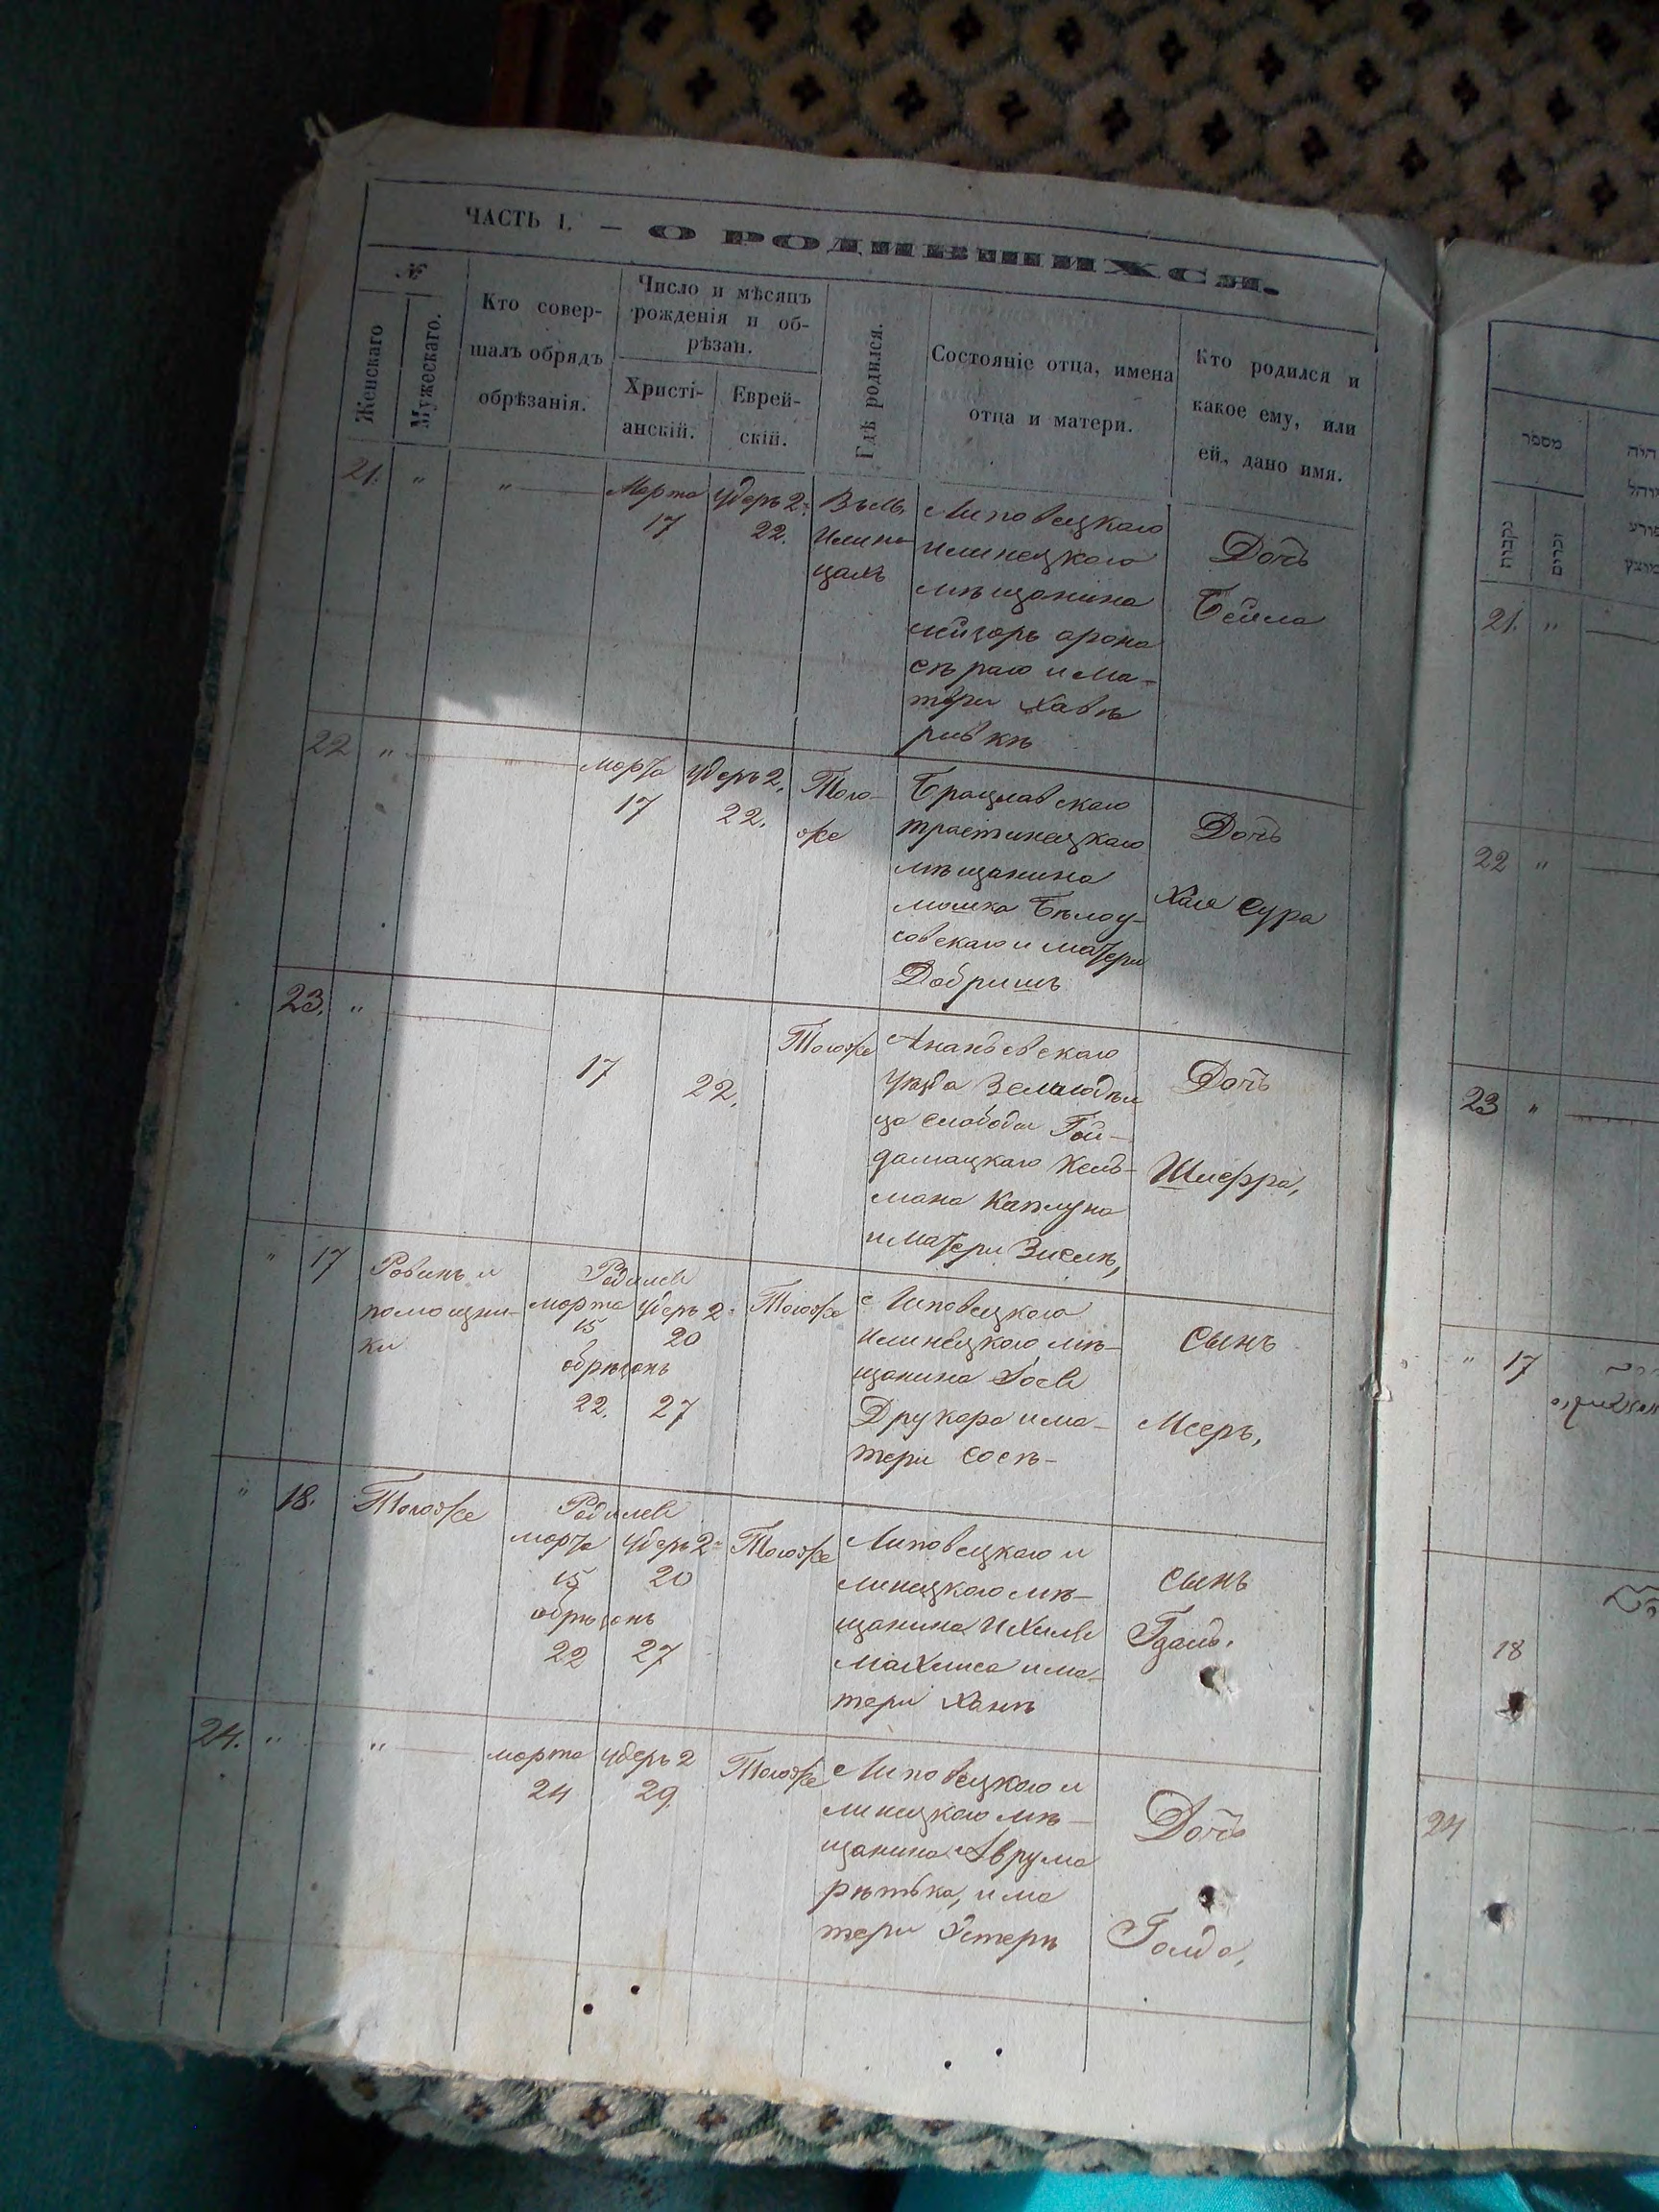 ЧАСТЬ I. — О РОДИВШИХСЯ.
№
Женскаго
Мужескаго.
Кто совер-
шалъ обрядъ
обрѣзанія.
Число и мѣсяцъ
рожденія и об-
рѣзан.
Христі-
анскій.
Еврей-
скій.
Гдѣ родился.
Состояніе отца, имена
отца и матери.
Кто родился и
какое ему, или
ей, дано имя.
21. " "
Марта
17
Удеръ 2:
22.
Въ м.
Илин
цахъ
Липовецкого
илинецкого
мѣщанина
арона
и ма-
тери Хавѣ
ривкѣ
Дочь
Бейла
22 " "
марта
17
Удеръ 2.
22.
Того-
же
Брацлавскаго
тростинецкаго
мѣщанина
мошка Бѣлоу-
совскаго и матери
Добришъ
Дочь
Хая Сура
23. "
17
22.
Тогоже
Ананьевскаго
уѣзда Земледѣл
ца слободы Гай-
дамацкаго Кель-
мана Каплуна
и матери Зислѣ,
Дочь
Шифра,
" 17
Равинъ и
помощни-
ки
Родился
марта
15
Удеръ 2:
20
обрѣзанъ
22. 27
Тогоже
Липовецкого
Илинецкого мѣ-
щанина
Друкара и ма-
тери Сосѣ-
Сынъ
Мееръ,
" 18.
Тогоже
Родился
марта
15
Удеръ 2:
20
обрѣзанъ
22 27
Тогоже
Липовецкаго и
линецкого мѣ-
щанина Ихиля
Махлиса и ма-
тери Ханѣ
Сынъ
24. " "
марта
24
Удеръ 2
29.
Тогоже
Липовецкого и
линецкого мѣ-
щанина Аврума
и ма
тери Эстеръ
Дочь
Голда,
מספר
נקבות
זכרים
21. "
22 "
23 "
" 17
18
24